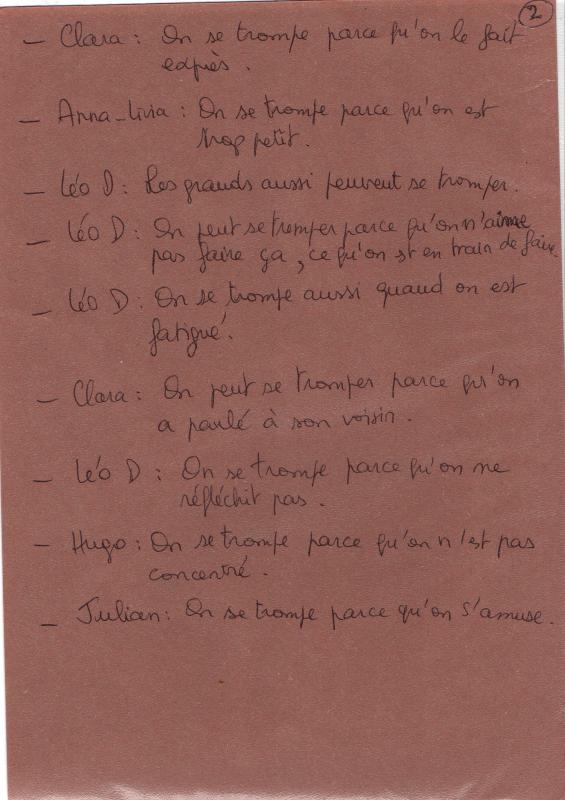 2
– Clara : On se trompe parce qu'on le fait
exprès .
– Anna-Livia : On se trompe parce qu'on est
trop petit .
– Léo D : Les grands aussi peuvent se tromper .
– Léo D : On peut se tromper parce qu'on n'aime
pas faire ça , ce qu'on est en train de faire .
– Léo D : On se trompe aussi quand on est
fatigué .
– Clara : On peut se tromper parce qu'on
a parlé à son voisin .
– Léo D : On se trompe parce qu'on ne
réfléchit pas .
– Hugo : On se trompe parce qu'on n'est pas
concentré .
– Julian : On se trompe parce qu'on s'amuse .